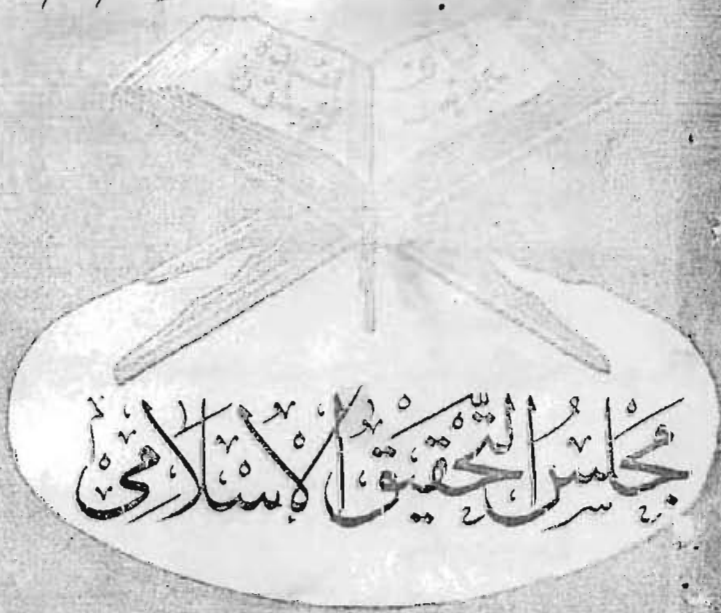 مَجْلِسُ التَّحْقِيقِ الْإِسْلَامِي